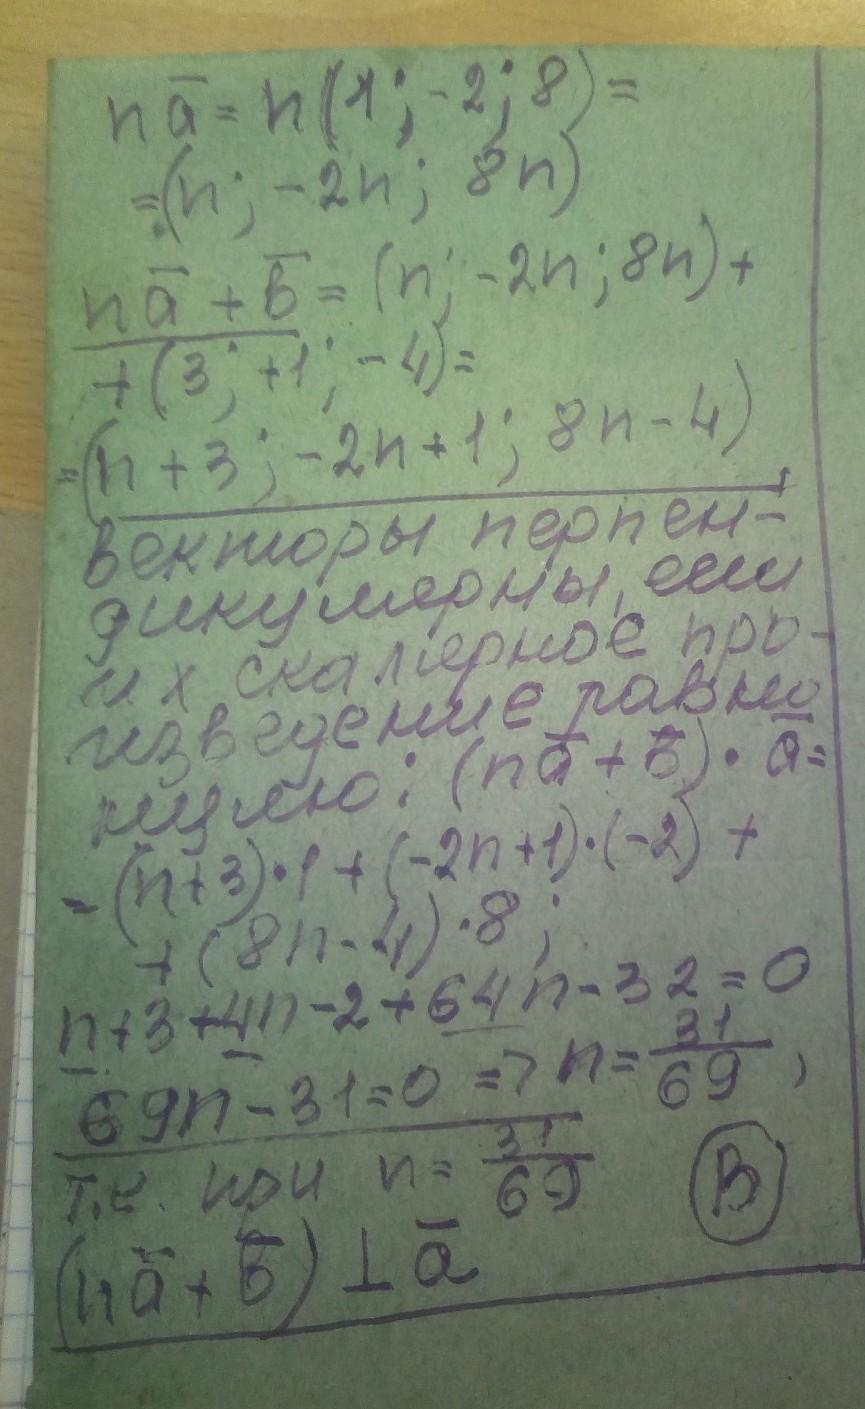 nā = n(1; -2; 8) =
= (n; -2n; 8n)
nā + b̄ = (n; -2n; 8n) +
+ (3; +1; -4) =
= (n + 3; -2n + 1; 8n - 4)
векторы перпен-
дикулярны, если
их скалярное про-
изведение равно
нулю: (nā + b̄) · ā =
= (n+3)·1 + (-2n+1)·(-2) +
+ (8n - 4)·8;
n+3+4n-2+64n-32=0
69n - 31=0 => n = 31/69,
т.е. при n = 31/69 В
(nā + b̄) ⊥ ā